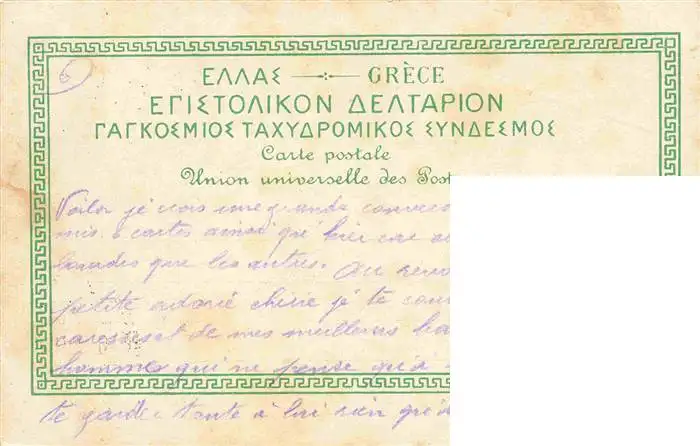 6
ΕΛΛΑΣ GRÈCE
ΕΠΙΣΤΟΛΙΚΟΝ ΔΕΛΤΑΡΙΟΝ
ΠΑΓΚΟΣΜΙΟΣ ΤΑΧΥΔΡΟΜΙΚΟΣ ΣΥΝΔΕΣΜΟΣ
Carte postale
Union universelle des Post
Voila je crois une grande
mis 6 cartes ainsi qu'hier
lourdes que les autres. Au
petite adorée chérie je te
caressant de mes meilleurs
hommes qui ne pense qu'à
te garder toute à lui rien qu'à